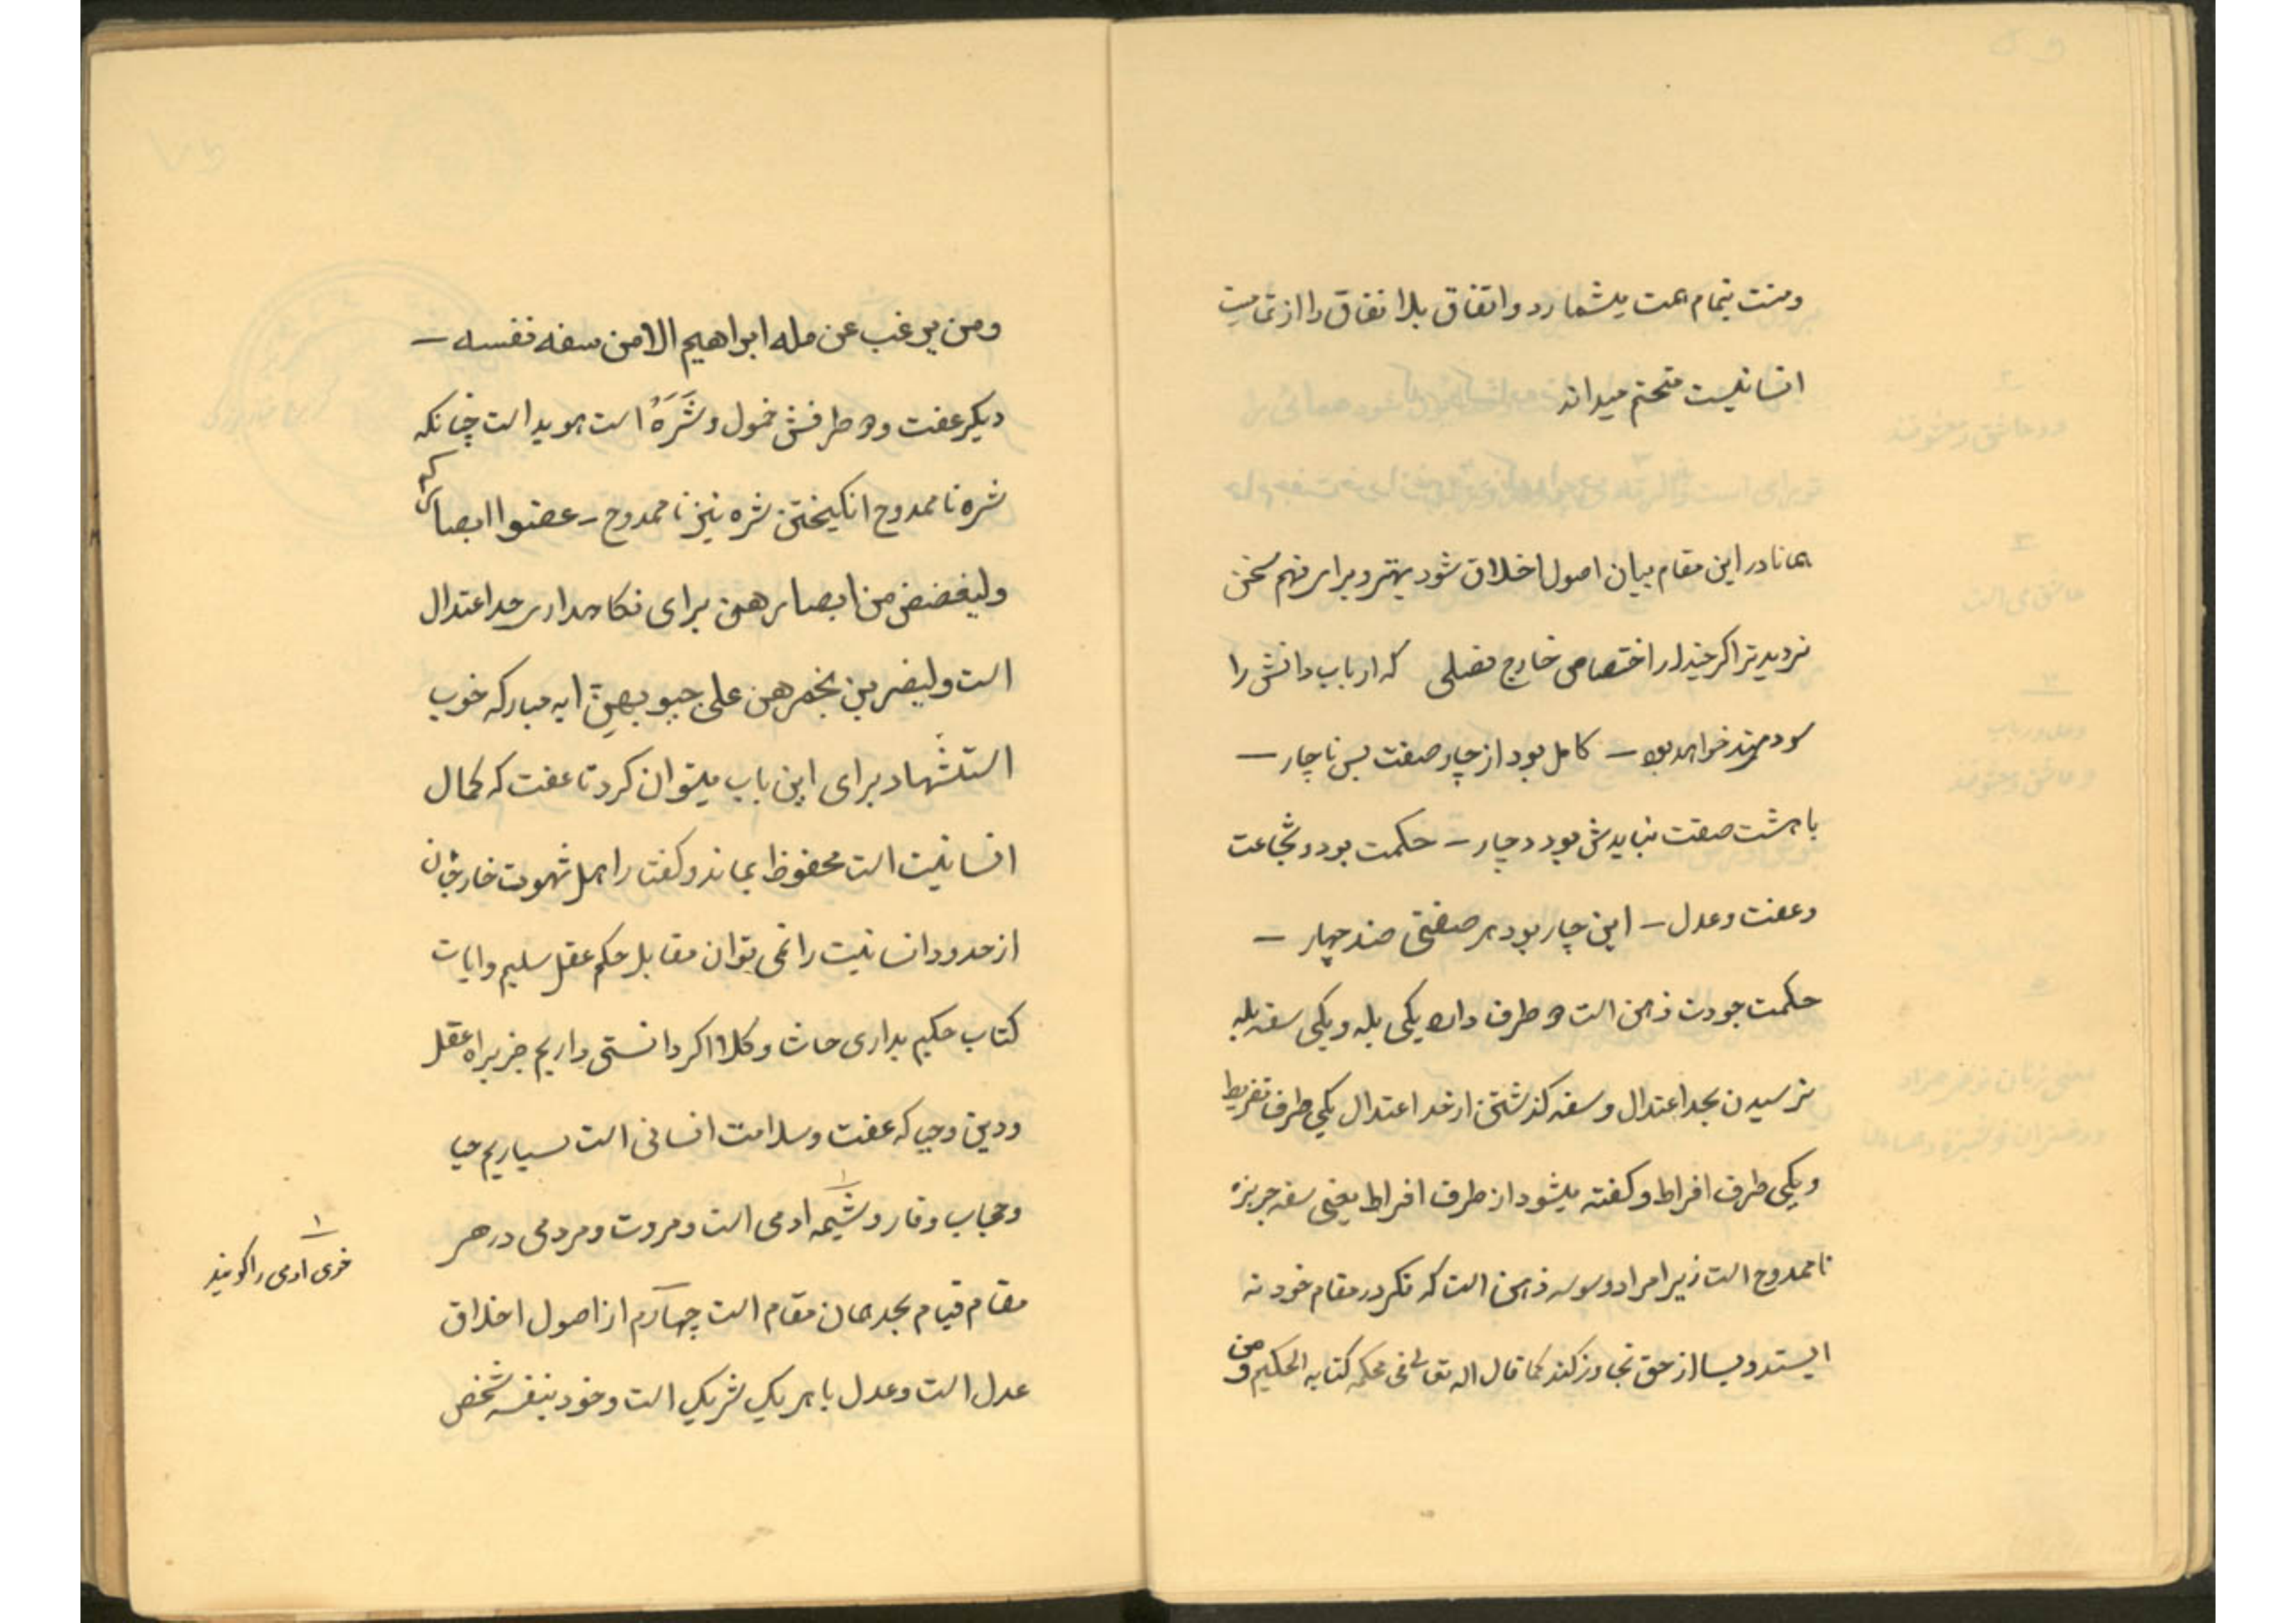 ومنت بتمام همت میشمارد و اتفاق بلا نفاق را از تمامیت
انسانیت متحتم میداند
همانا در این مقام بیان اصول اخلاق شود بهتر و برای فهم سخن
نزدیدتر اگر چندار اختصاصی خارج فصلی که ارباب دانش را
سودمند خواهد بود – کامل بود از چار صفت بس ناچار –
با هشت صفت نبایدش بود دچار – حکمت بود و شجاعت
و عفت و عدل – این چار بود هر صفتی ضد چهار –
حکمت جودت ذهن است دو طرف دارد یکی بله و یکی سفه بله
نرسیدن بحد اعتدال و سفه گذشتن از حد اعتدال یکی طرف تفریط
و یکی طرف افراط و گفته میشود از طرف افراط یعنی سفه جربزه
ناممدوح است زیرا مراد وسوسه ذهن است که فکر در مقام خود نه
ایستد و بسا از حق تجاوز کند کما قال اله تعالی فی محکم کتابه الحکیم و من
ومن یرغب عن مله ابراهیم الا من سفه نفسه –
دیکر عفت و دو طرفش خمول و شَرَهُ است هویداست چنانکه
شره ناممدوح انکیختن شره نیز ناممدوح – عضوا ابصارکم
ولیغضض من ابصارهن برای نکاهداری حد اعتدال
است ولیضربن بخمرهن علی جیوبهن ایه مبارکه خوب
استشهاد برای این باب میتوان کرد تا عفت که کمال
انسانیت است محفوظ بماند و کفتار اهل شهوت خارجان
از حدود انسانیت را نمی توان مقابل حکم عقل سلیم و ایات
کتاب حکیم بداری حاشا و کلا اکر دانستی داریم جز براه عقل
و دین و حیا که عفت و سلامت انسانی است نسپاریم حیا
و حجاب وقار و شیمه ادمی است و مروت و مردمی در هر
مقام قیام بحد همان مقام است چهارم از اصول اخلاق
عدل است و عدل با هر یک شریک است و خود بنفسه شخص
۱
خوی ادمی را کویند